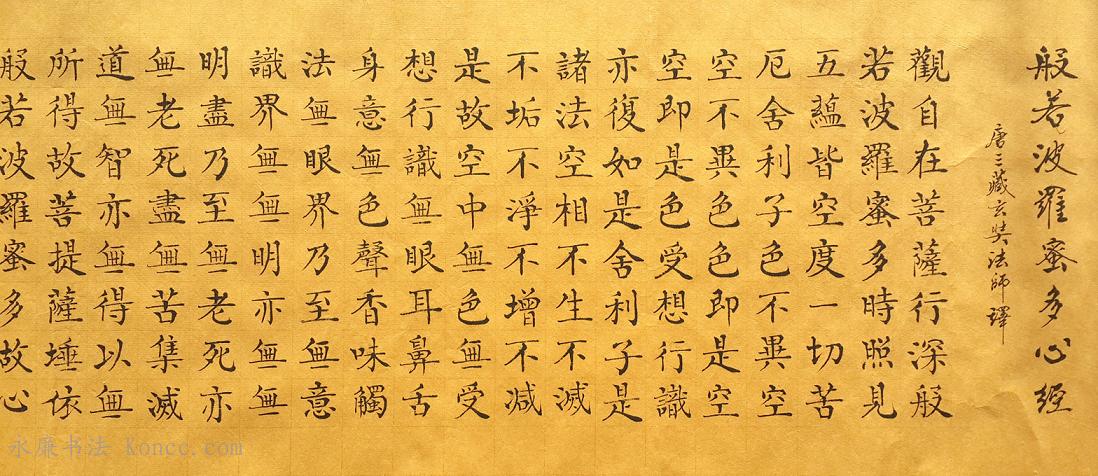 般若波羅蜜多心經
唐三藏玄奘法師譯
觀自在菩薩行深般
若波羅蜜多時照見
五蘊皆空度一切苦
厄舍利子色不異空
空不異色色即是空
空即是色受想行識
亦復如是舍利子是
諸法空相不生不滅
不垢不淨不增不减
是故空中無色無受
想行識無眼耳鼻舌
身意無色聲香味觸
法無眼界乃至無意
識界無無明亦無無
明盡乃至無老死亦
無老死盡無苦集滅
道無智亦無得以無
所得故菩提薩埵依
般若波羅蜜多故心
永廉书法 Koncc.com